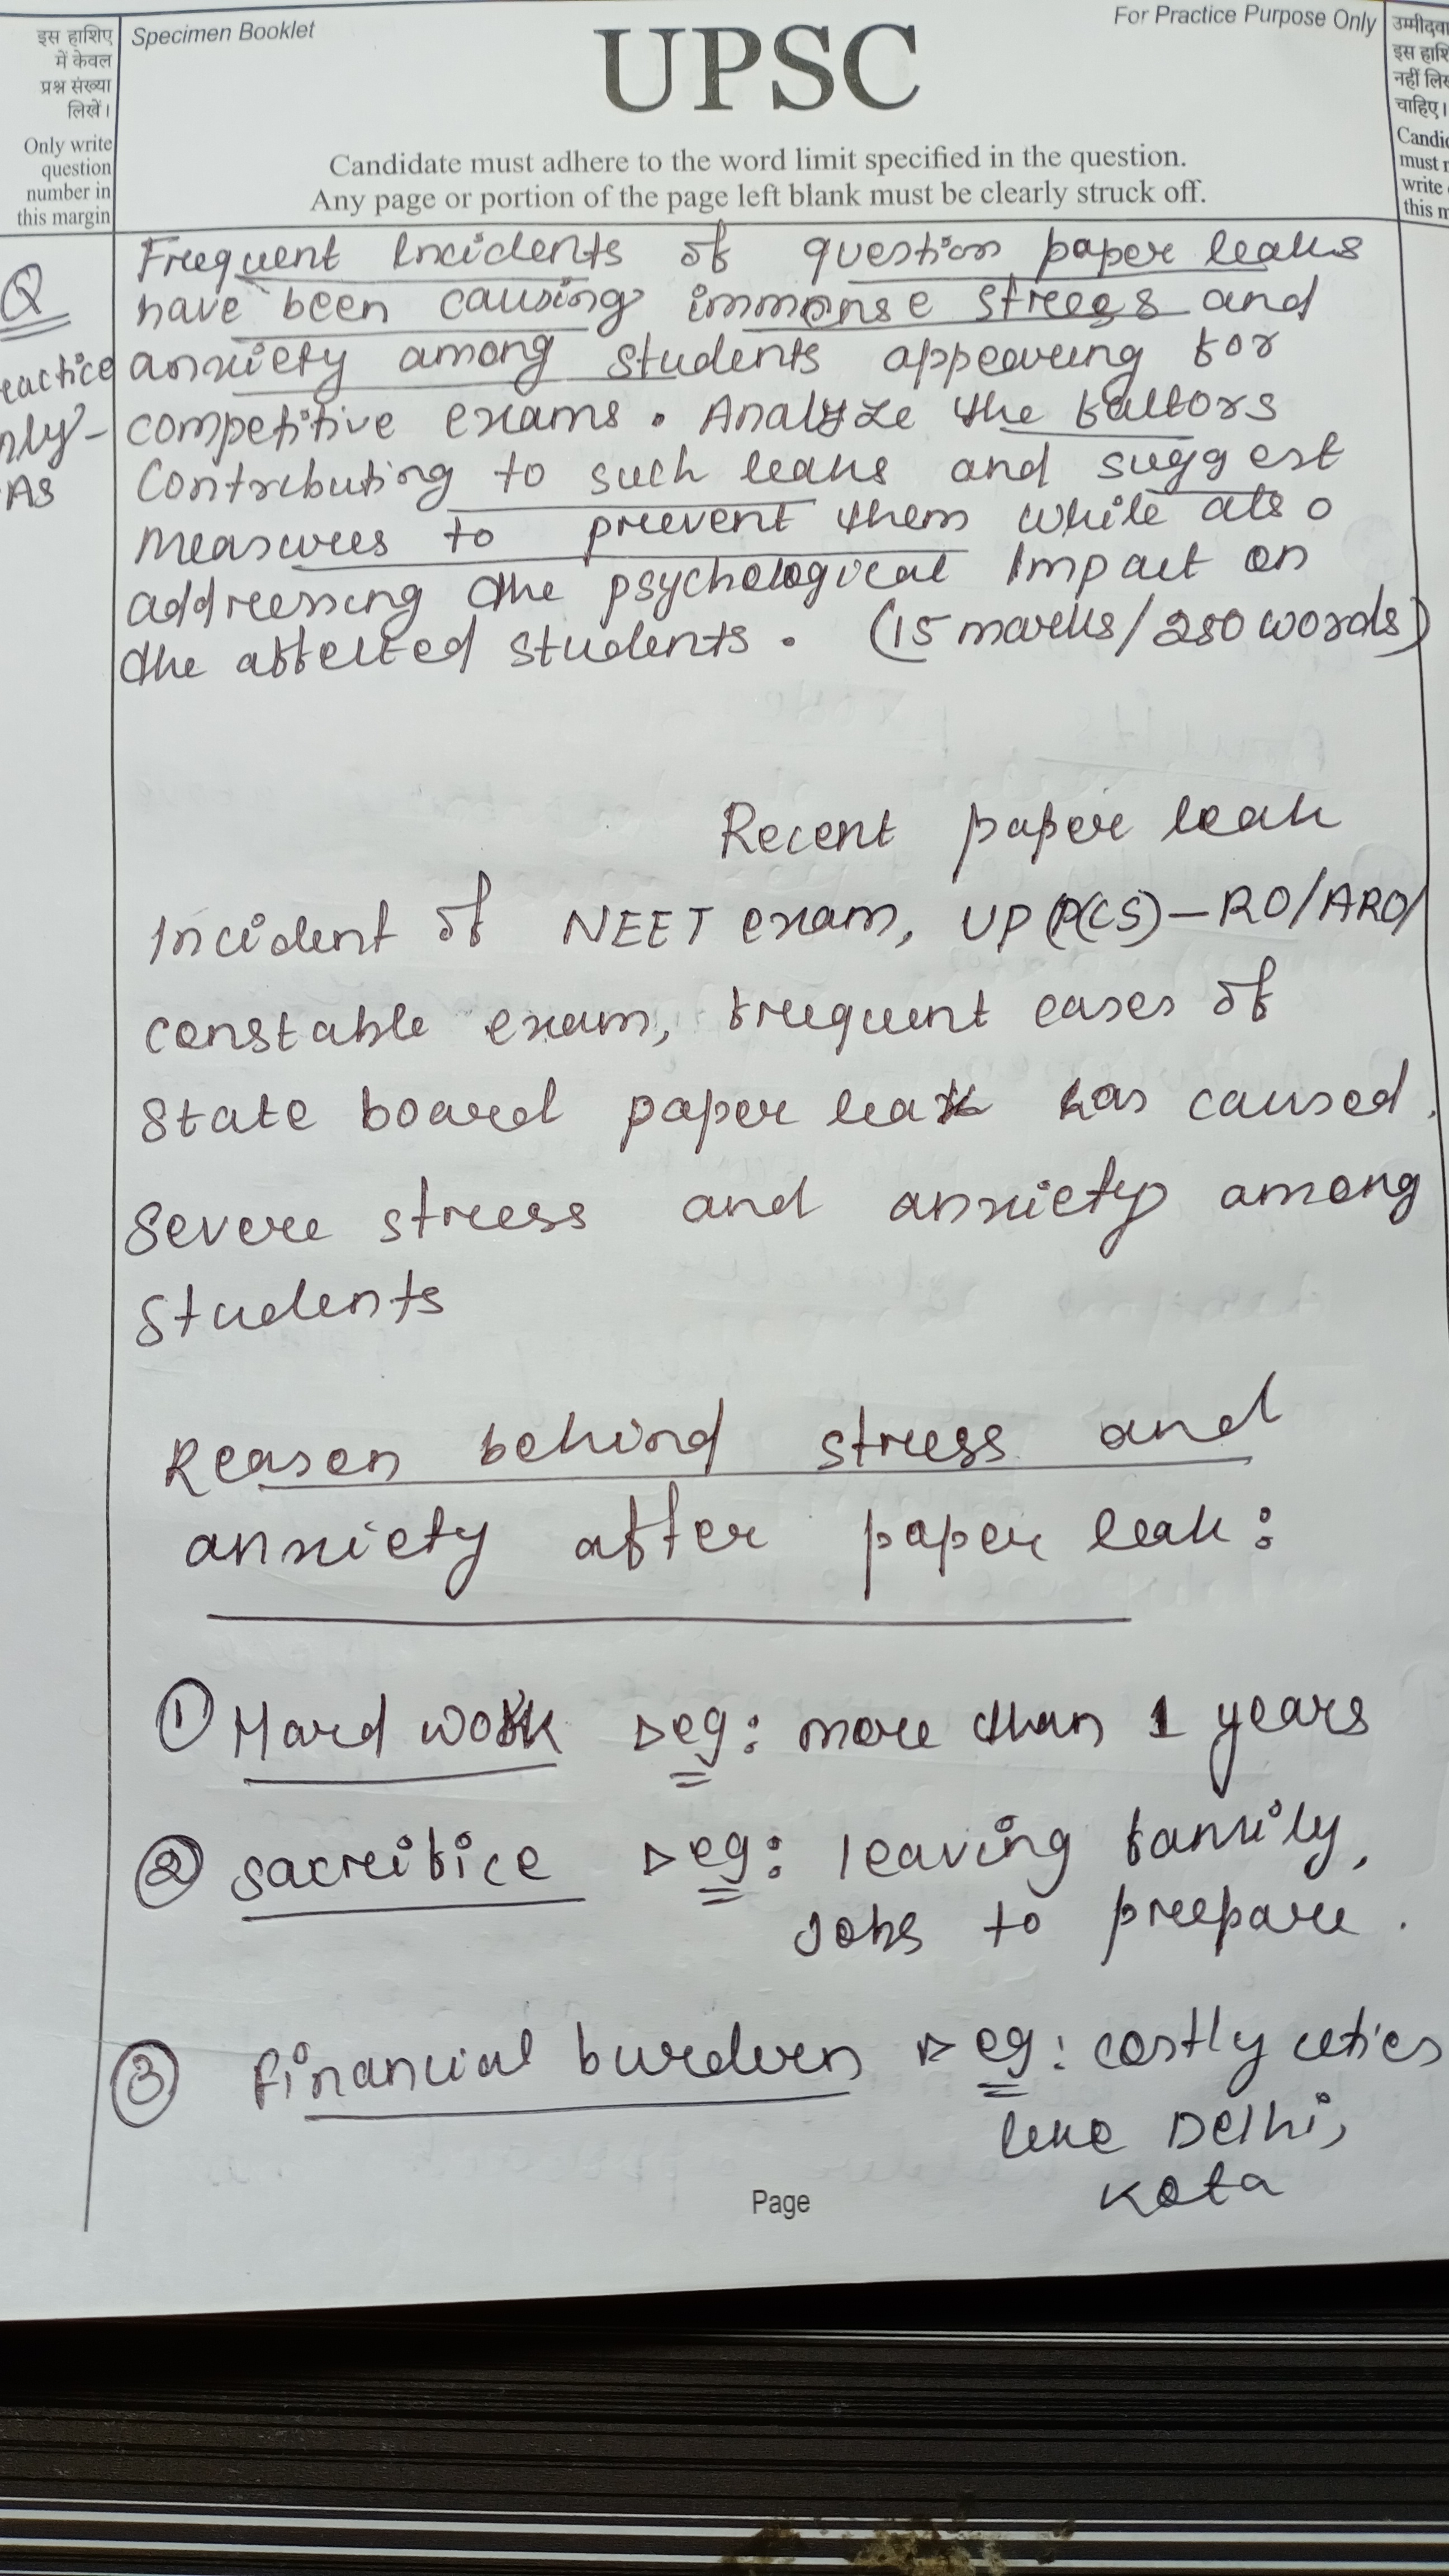 इस हाशिए
में केवल
प्रश्न संख्या
लिखें।
Only write
question
number in
this margin
Specimen Booklet
For Practice Purpose Only
UPSC
Candidate must adhere to the word limit specified in the question.
Any page or portion of the page left blank must be clearly struck off.
उम्मीदवा
इस हाशि
नहीं लिख
चाहिए।
Candid
must n
write
this m
Q
eactice
nly-
AS
Frequent Incidents of question paper leaks
have been causing immense stress and
anxiety among students appearing for
competitive exams. Analyze the factors
Contributing to such leaks and suggest
measures to prevent them while also
addressing the psychological Impact on
the affected students. (15 marks/250 words)
Recent paper leak
Incident of NEET exam, UP(PCS)-RO/ARO/
constable exam, frequent cases of
State board paper leak has caused
severe stress and anxiety among
students
Reason behind stress and
anxiety after paper leak:
① Hard work ▷ eg: more than 1 years
② sacrifice ▷ eg: leaving family,
Jobs to prepare.
③ financial burden ▷ eg: costly cities
like Delhi,
Kota
Page